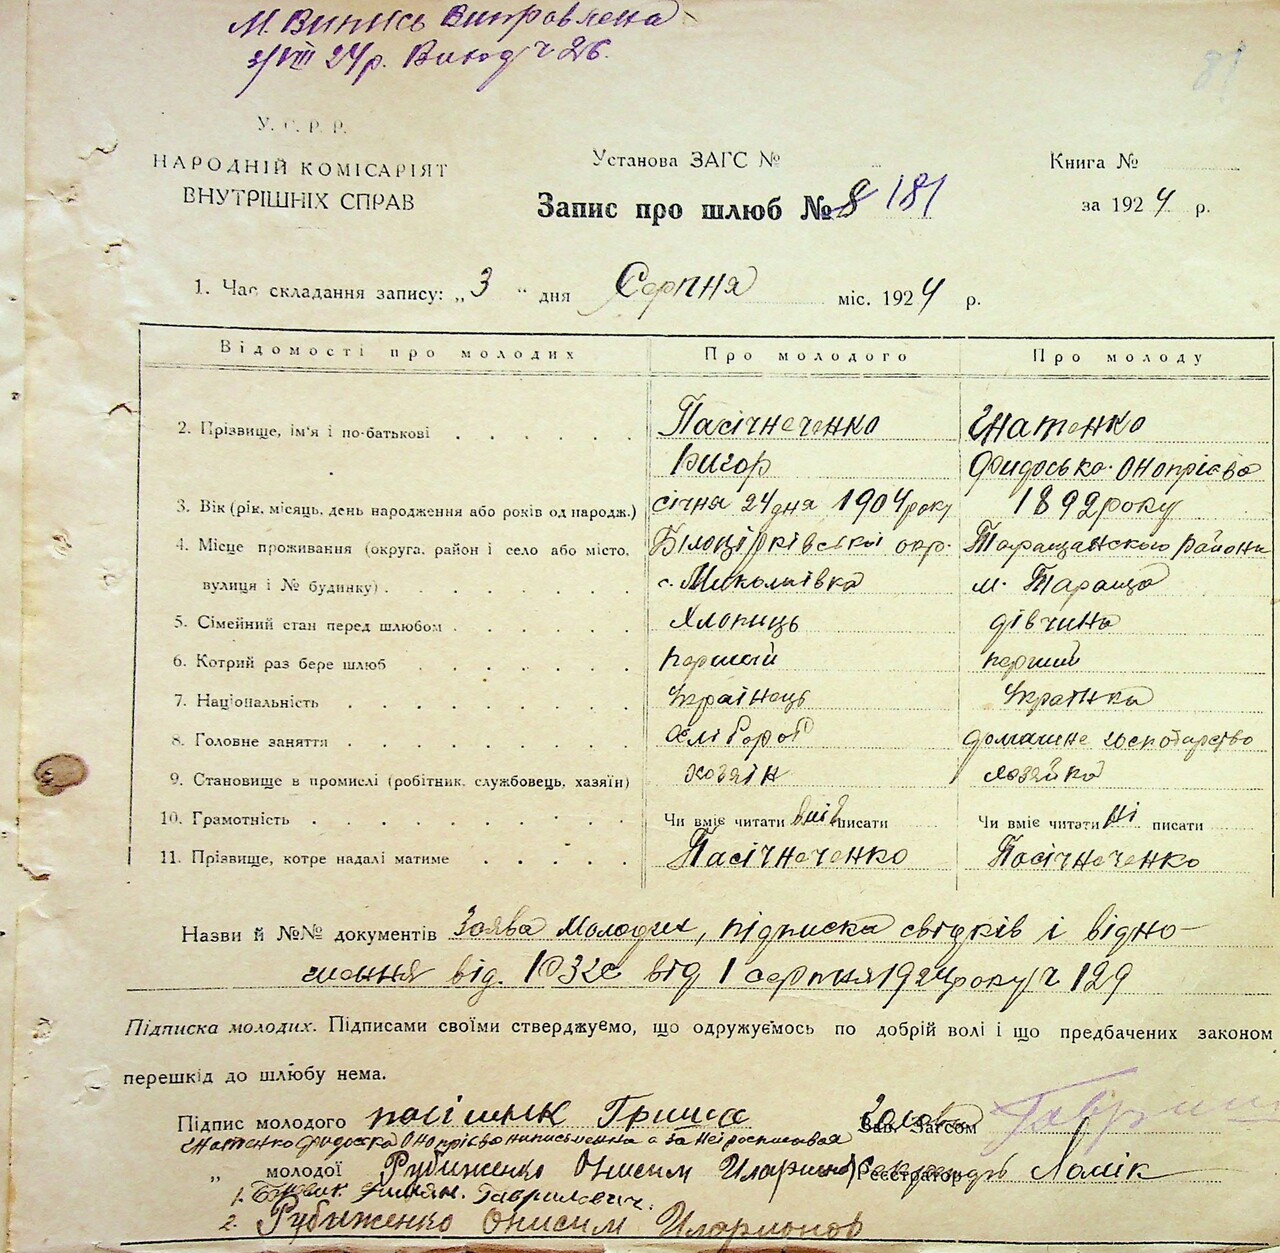 М. Випись Виправлена
3/VIII 24 р. Виход ч 226.
81
У. С. Р. Р.
НАРОДНІЙ КОМІСАРІЯТ
ВНУТРІШНІХ СПРАВ
Установа ЗАГС №
Книга №
Запис про шлюб № 8 181
за 1924 р.
1. Час складання запису: „3“ дня Серпня міс. 1924 р.
Відомості про молодих Про молодого Про молоду
2. Прізвище, ім'я і по-батькові Пасічнеченко Гнатенко
Григор Фидоська Онопріева
3. Вік (рік, місяць, день народження або років од народж.) січня 24 дня 1904 року 1892 року
4. Місце проживання (округа, район і село або місто, Білоцірківської окр. Таращанского району
вулиця і № будинку) с. Миколаівка м. Тараща
5. Сімейний стан перед шлюбом Хлопиць дівчина
6. Котрий раз бере шлюб первий перший
7. Національність Українець Українка
8. Головне заняття Хлібороб домашне господарство
9. Становище в промислі (робітник, службовець, хазяїн) хозяїн хозяйка
10. Грамотність Чи вміє читати вміє писати Чи вміє читати ні писати
11. Прізвище, котре надалі матиме Пасічнеченко Пасічнеченко
Назви й №№ документів Заява Молодих, підписка свідків і відно-
шення від. від 1 серпня 1924 року ч 129
Підписка молодих. Підписами своїми стверджуємо, що одружуємось по добрій волі і що предбачених законом
перешкід до шлюбу нема.
Підпис молодого Гриша Зав. Загсом
Гнатенко Фидоска Онопріево ниписьменна а за неі росписався
„ молодої Рубиженко Онисим Иларионов Реєстратор Ломік
1. Гаврилович.
2. Рубиженко Онисим Иларионов